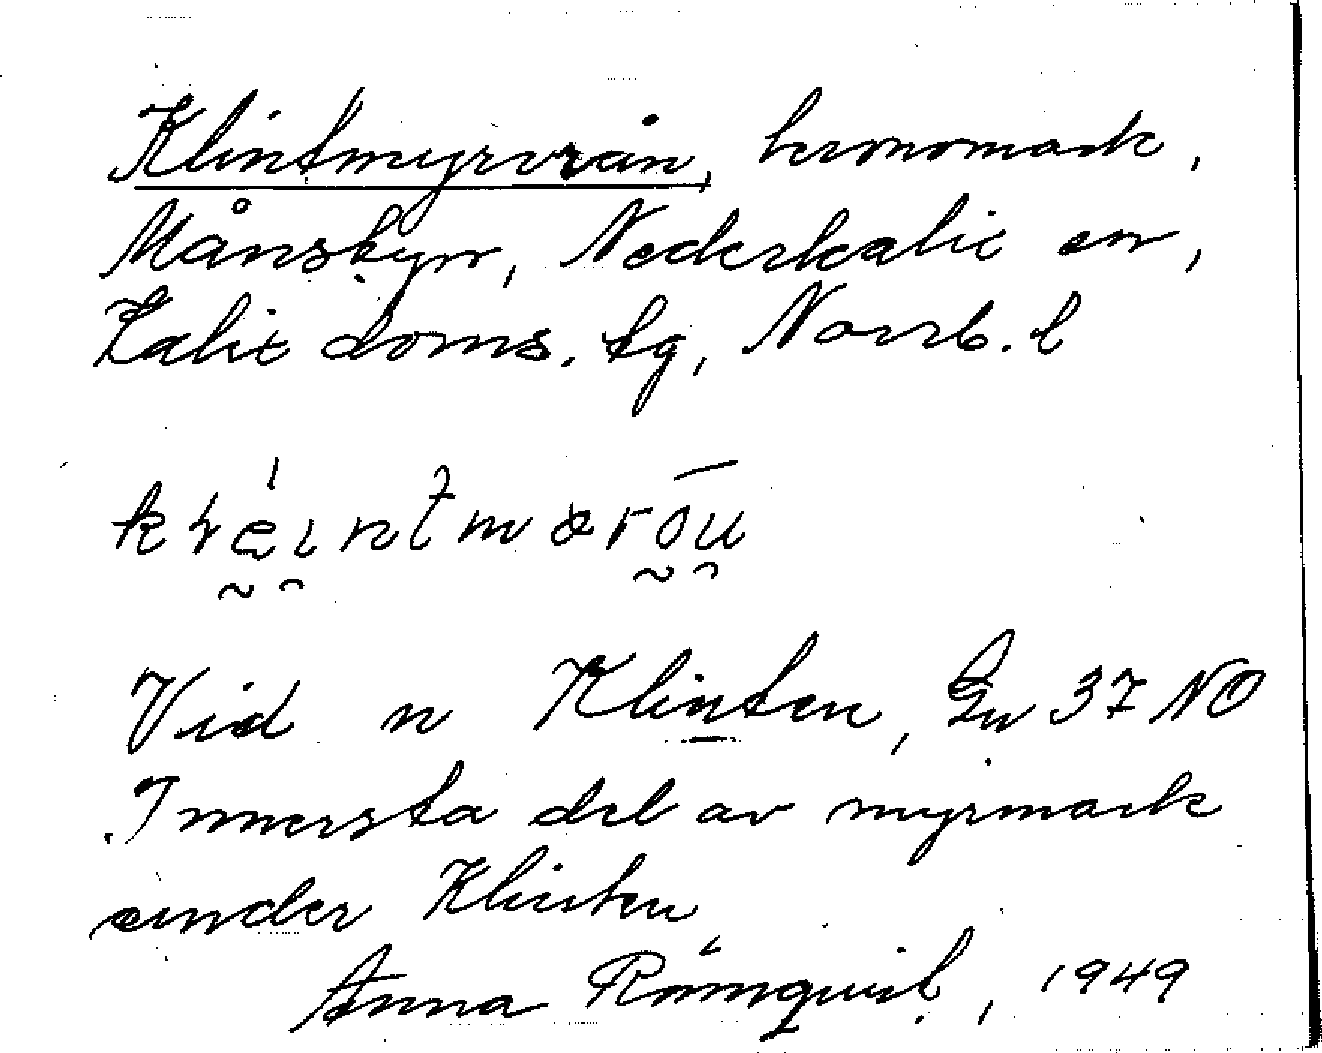 Klintmyrvrån, kronomark,
Månsbyn, Nederkalix sn,
Kalix doms. tg, Norrb. l
Vid n Klinten, Gw 37 NO
Innersta del av myrmark
under Klinten
Anna Römquist, 1949